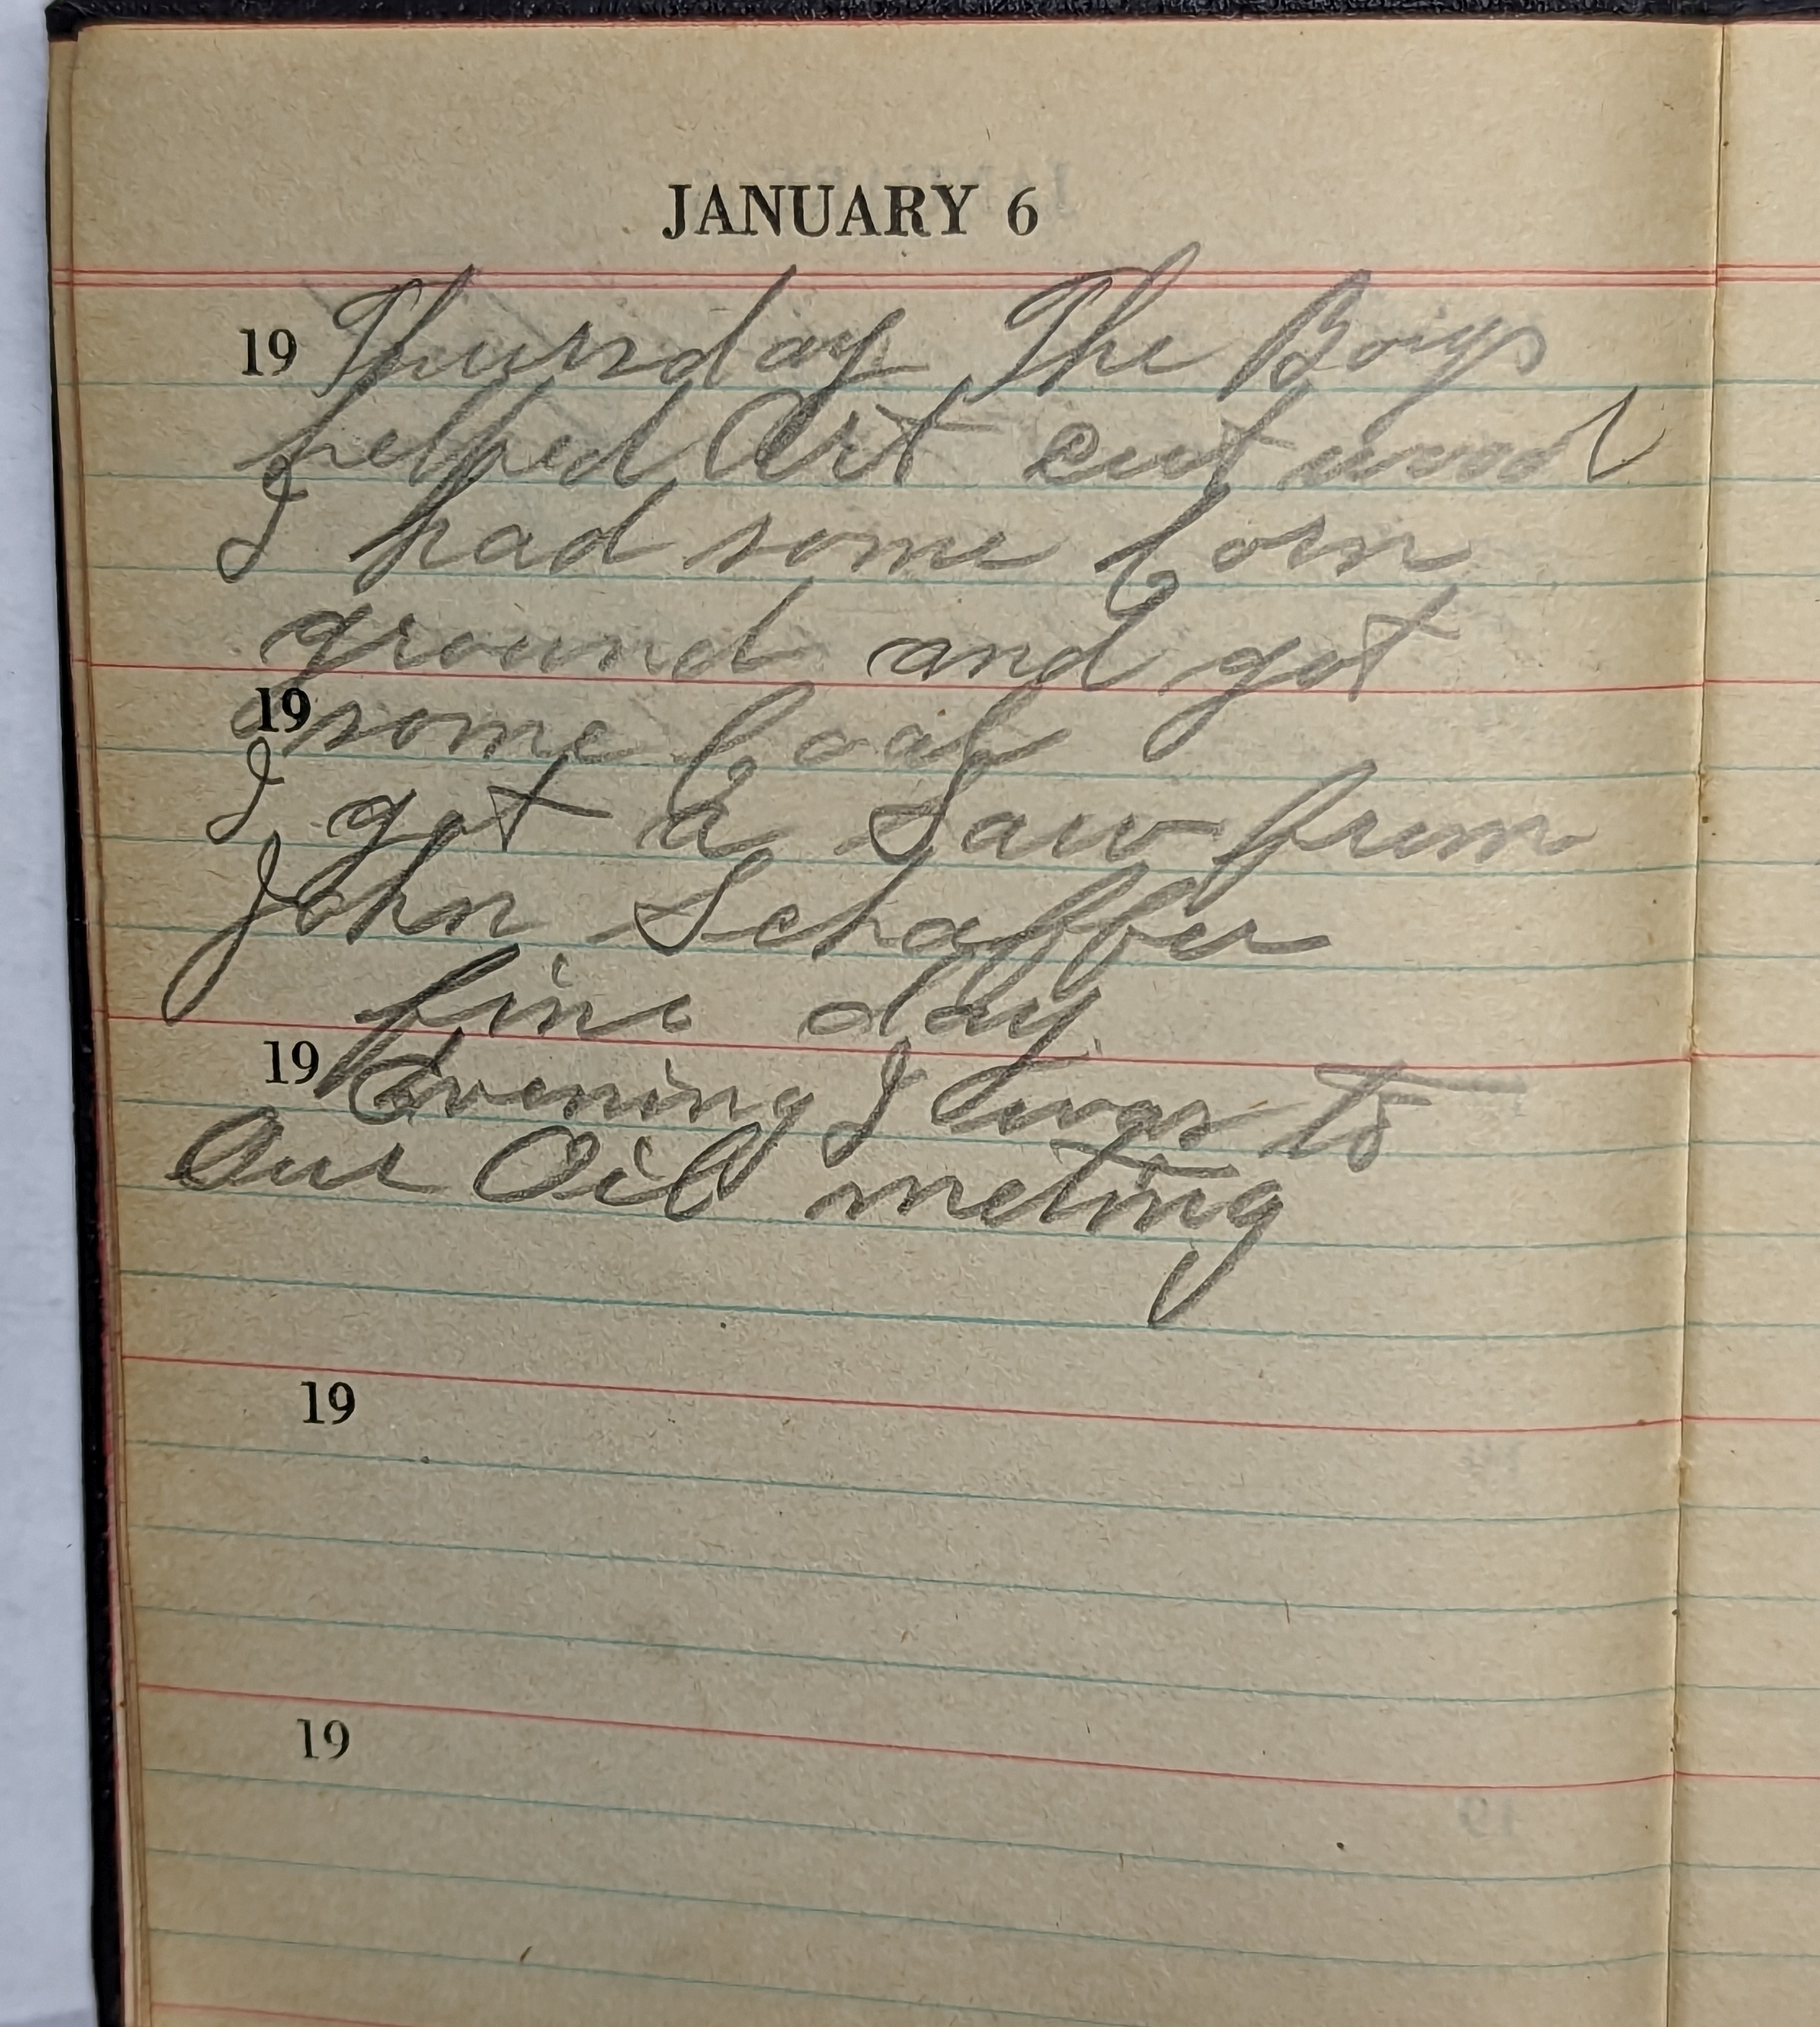 JANUARY 6
19 Thursday The Boys
helped Art cut wood
I had some Corn
ground and got
19 some Coal
I got a Saw from
John Schaffer
fine day
19 Evening I was to
Our Oil meting
19
19